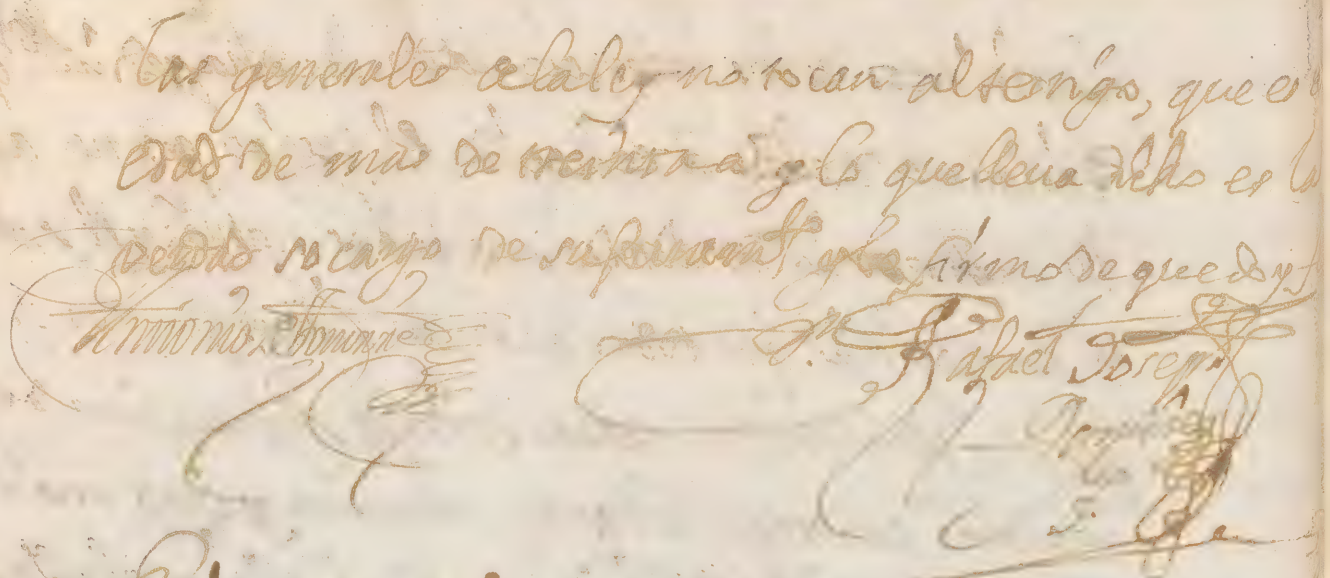 las generales de la ley no tocan al testigo, que es
edad de mas de treinta a y lo que lleva dicho es la
verdad so cargo de su juramto y lo firmo de que doy f
Antonio
Dn Rafael Joseph